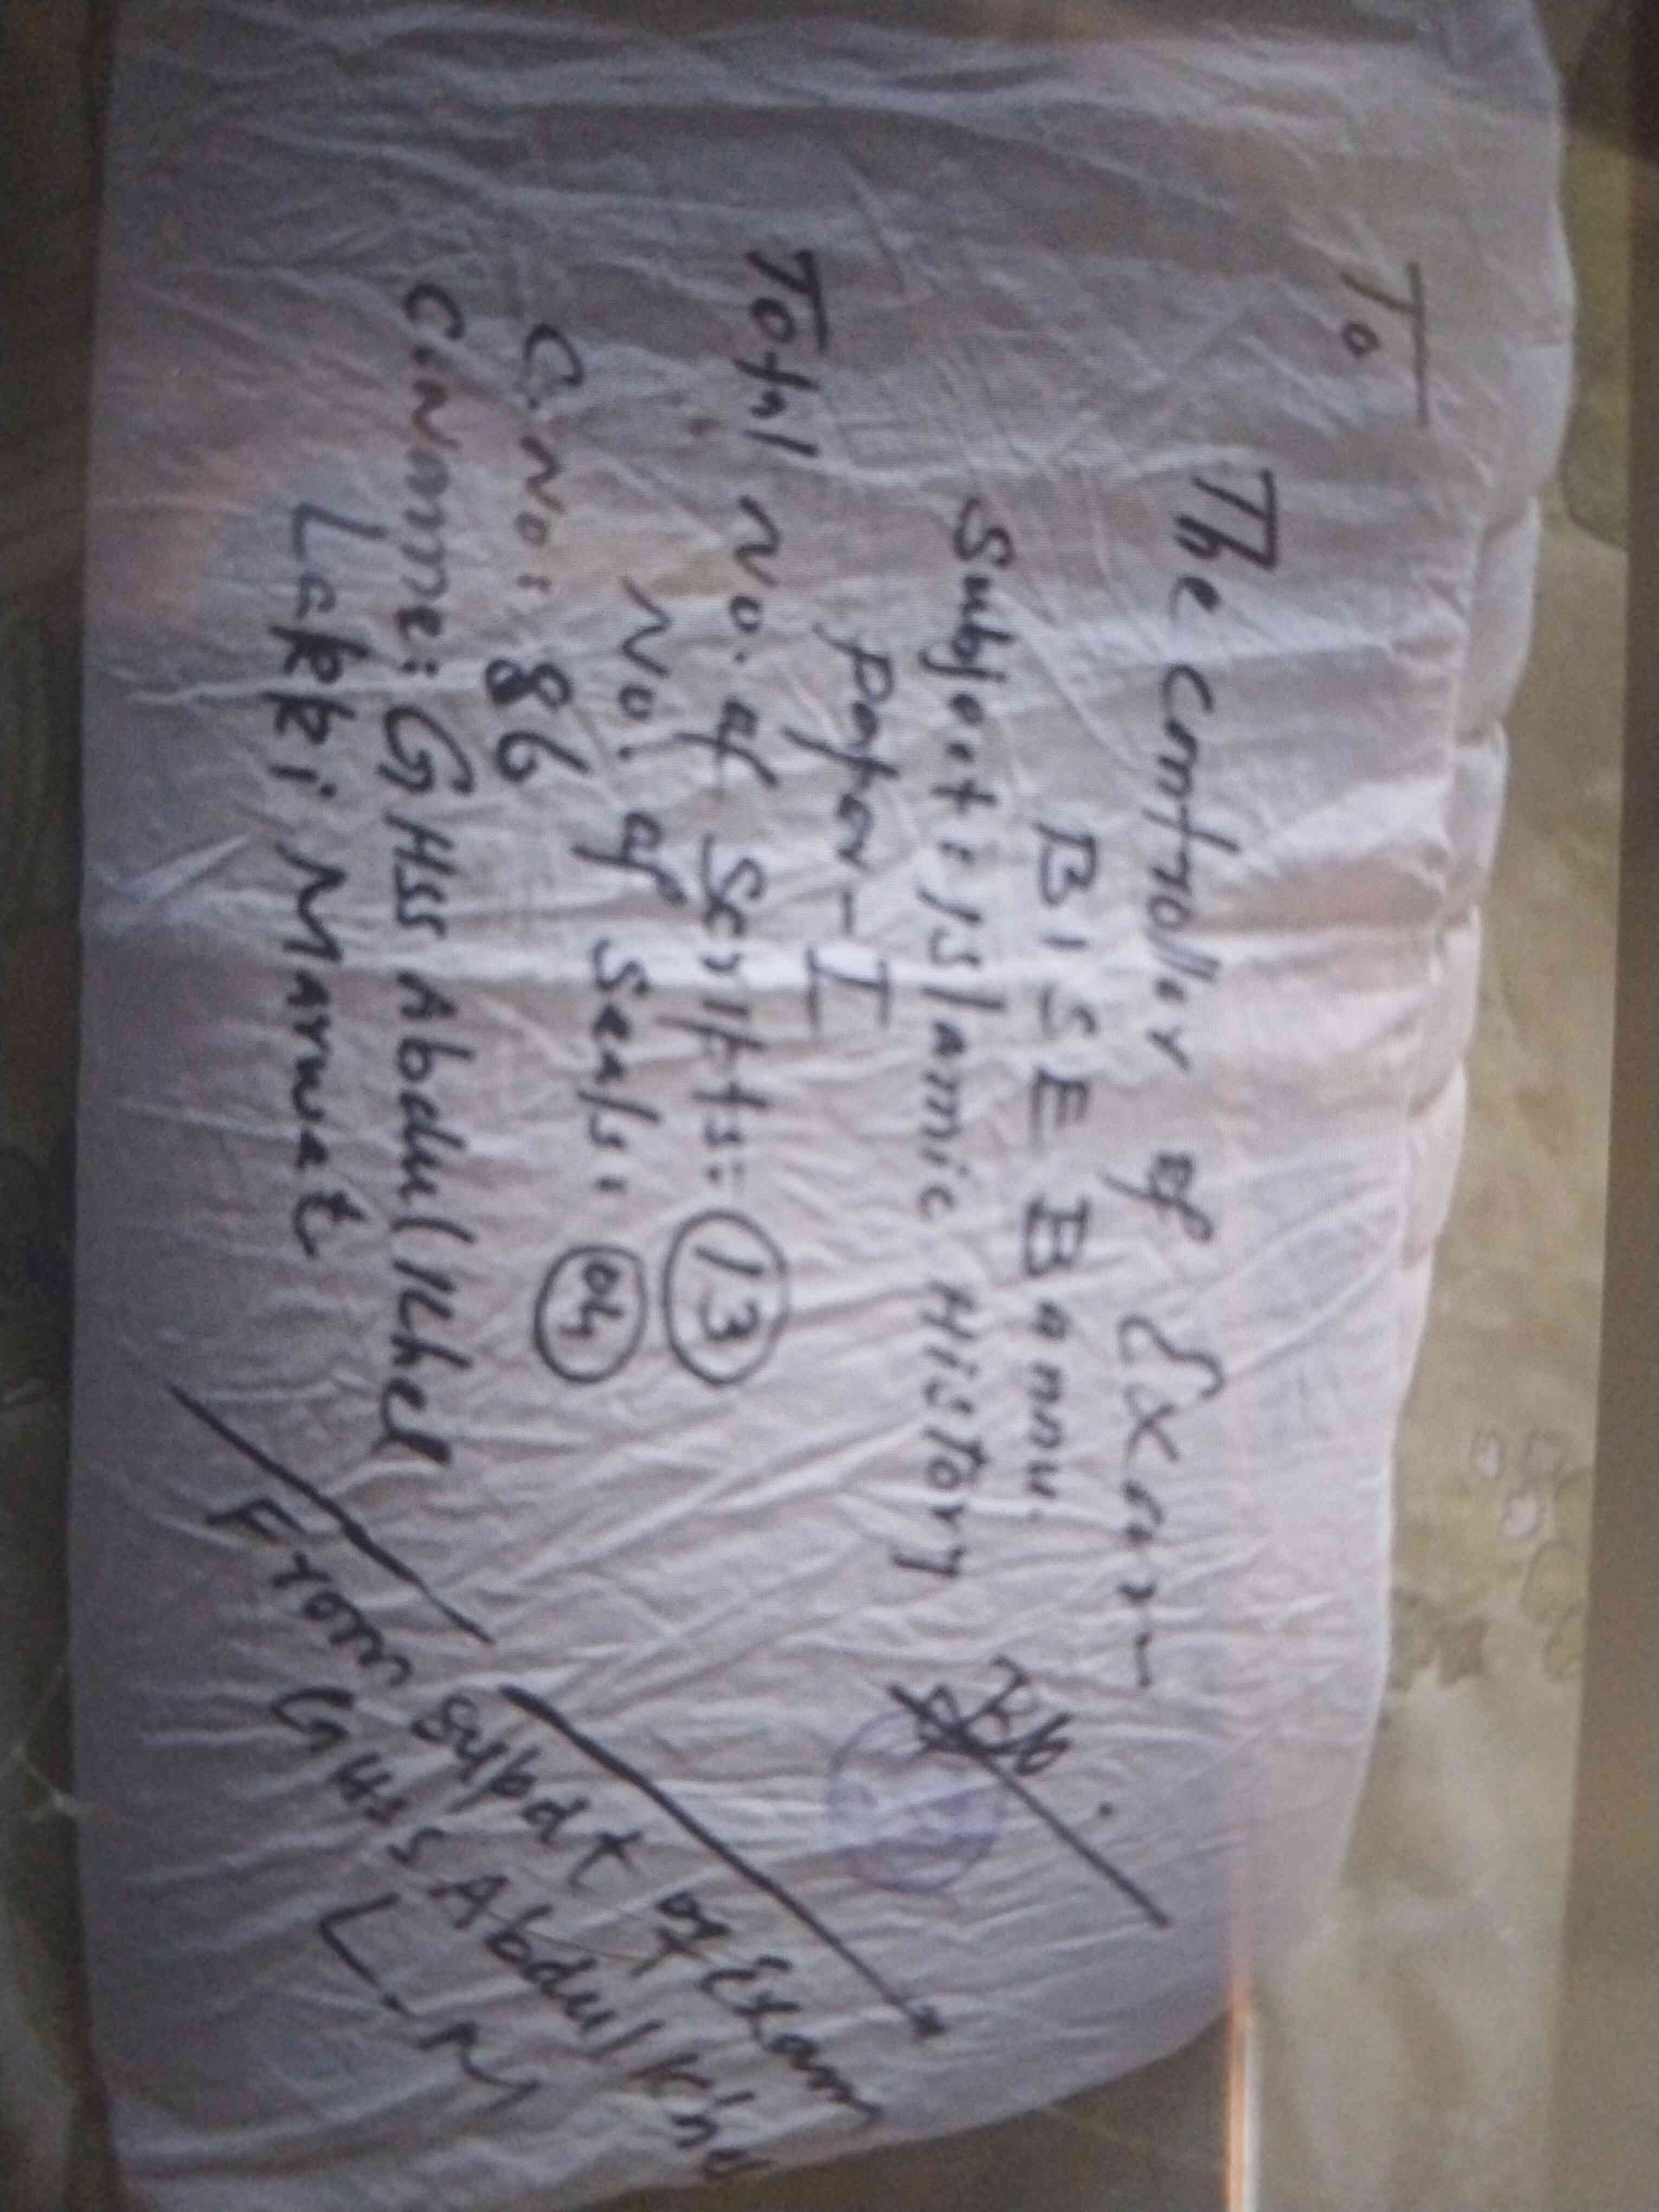 To
The Controller of Exam
BISE Bannu.
Subject: Islamic History
Paper-I
Total No. of Scripts: 13
No. of Seals: 04
C.No: 86
C.Name: GHSS Abdul Khel
Lakki Marwat
From Supdt of Exam
GHSS Abdul Khel
L-M